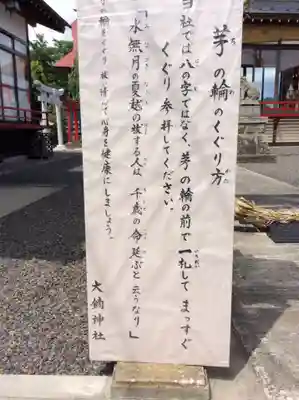 茅の輪のくぐり方
ち わ かた
当社では八の字ではなく、茅の輪の前で一礼してまっすぐ
くぐり参拝してください。
「水無月の夏越の祓する人は 千歳の命延ぶと云うなり」
輪をくぐり祓い清めて心身を健康にしましょう。
大鏑神社